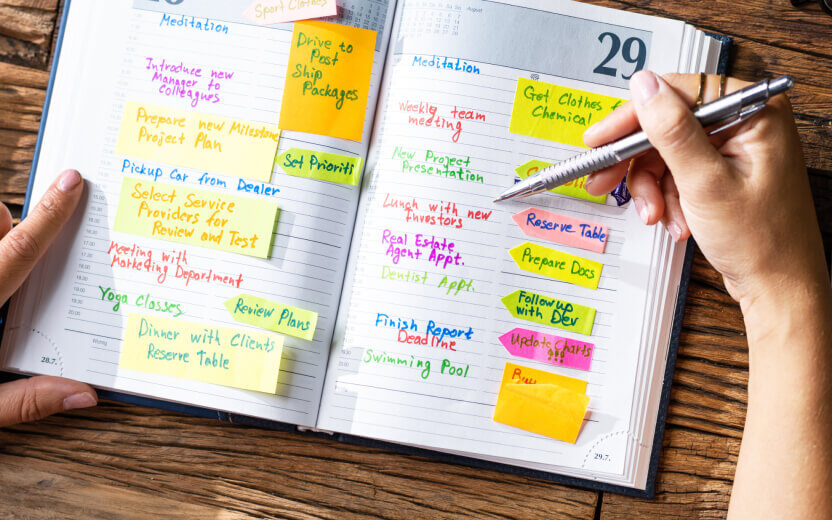 Sport Clothes
Meditation
Drive to
Post
Ship
Packages
Introduce new
Manager to
Colleagues
Prepare new Milestone
Project Plan
Set Prioriti
Pickup Car from Dealer
Select Service
Providers for
Review and Test
Meeting with
Marketing Department
Yoga Classes
Review Plans
Dinner with Clients
Reserve Table
28.7.
August
29
Meditation
Get Clothes
Chemical
Weekly team
meeting
New Project
Presentation
Lunch with new
Investors
Reserve Table
Real Estate
Agent Appt.
Prepare Docs
Dentist Appt.
Followup
with Dev
Finish Report
Deadline
Update Charts
!!!
Swimming Pool
29.7.